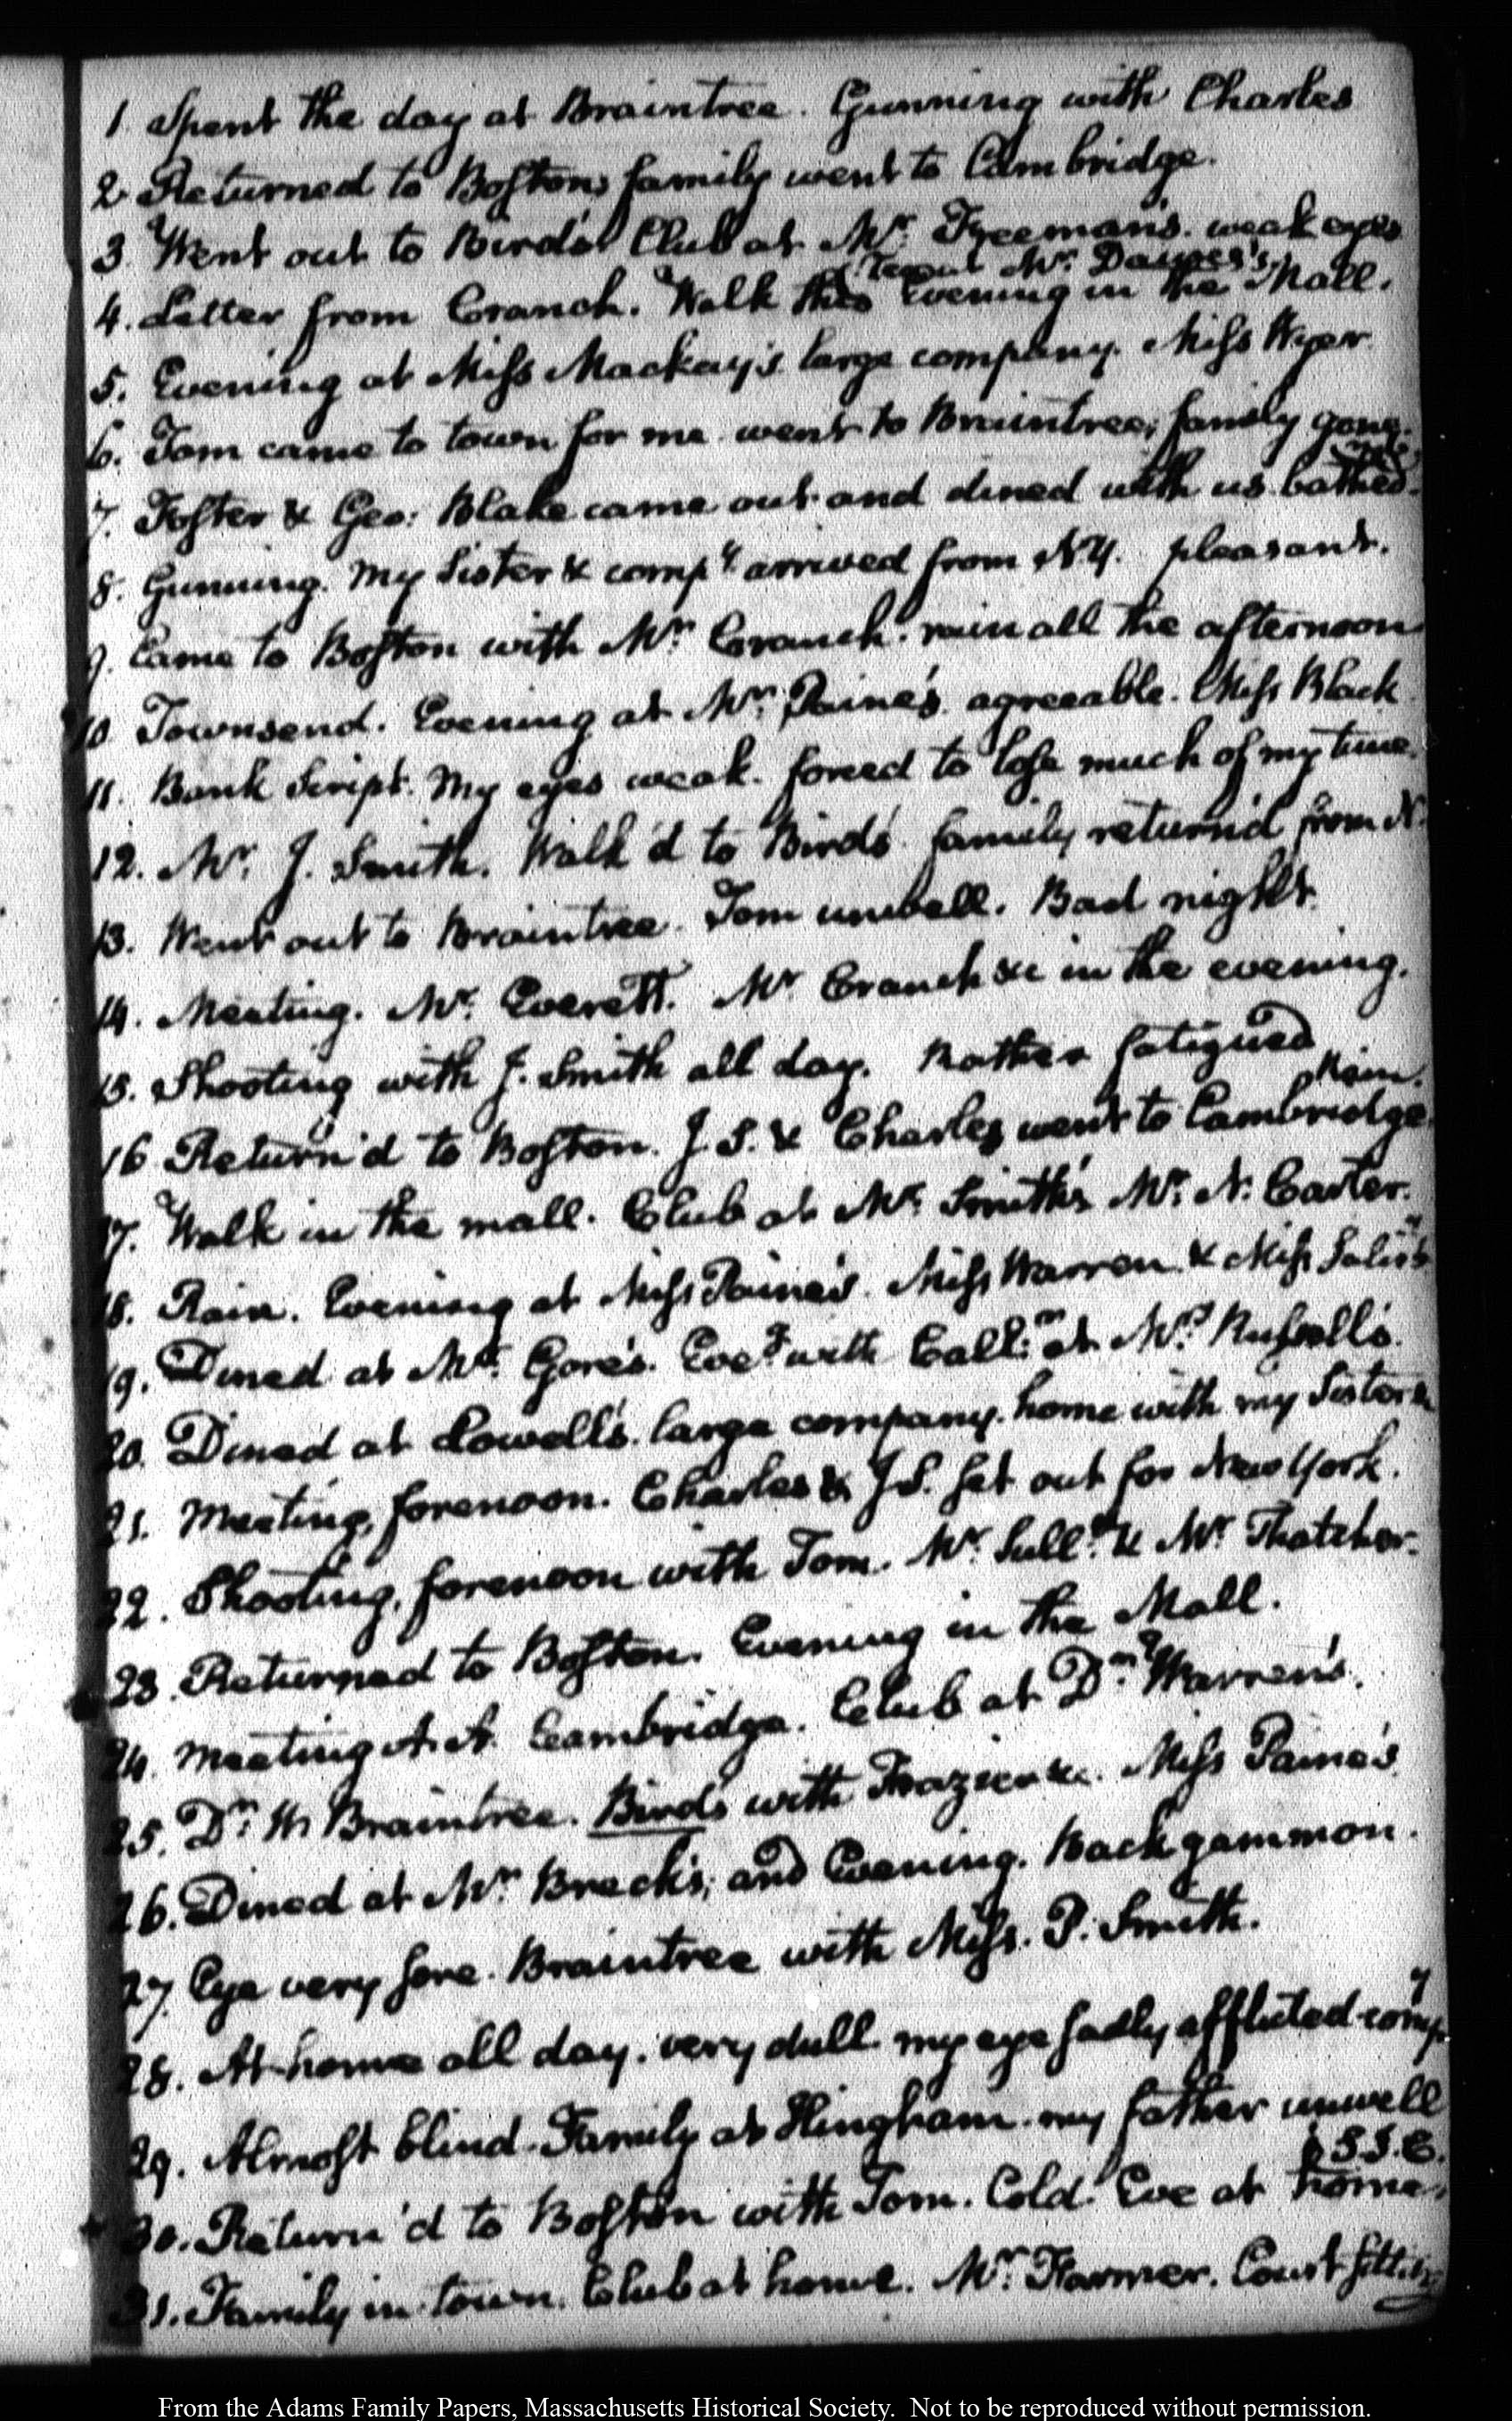 1. Spent the day at Braintree. Gunning with Charles
2 Returned to Boston, family went to Cambridge.
3. Went out to Bird's. Club at Mr. Freeman's. weak eyes
Mr. Dawes's.
4. Letter from Cranch. Walk this Evening in the Mall.
5. Evening at Miss Mackay's. large company. Miss Wyer
6. Tom came to town for me. went to Braintree; family gone.
7. Foster & Geo: Blake came out and dined with us. bathed.
8. Gunning. My Sister & compy. arrived from N.Y. pleasant.
9. Came to Boston with Mr. Cranch. rain all the afternoon
10 Townsend. Evening at Mr. Paine's. agreeable. Miss Black
11. Bank Script. My eyes weak. forced to lose much of my time.
12. Mr. J. Smith. Walk'd to Bird's. family return'd from N.
13. Went out to Braintree. Tom unwell. Bad night.
14. Meeting. Mr. Everett. Mr. Cranch &c in the evening.
15. Shooting with J. Smith all day. Rather fatigued
Rain.
16 Return'd to Boston. J. S. & Charles went to Cambridge.
17. Walk in the mall. Club at Mr. Smith's Mr. N. Carter.
18. Rain. Evening at Miss Paine's. Miss Warren & Miss Salisby
19. Dined at Mr. Gore's. Eveg. with Calln. at Mrs. Russell's.
20. Dined at Lowell's. large company. home with my Sister &c
21. Meeting, forenoon. Charles & J S. set out for New York.
22. Shooting, forenoon with Tom. Mr. Sulln. & Mr Thatcher.
23. Returned to Boston. Evening in the Mall.
24. Meeting A. A. Cambridge. Club at Dr. Warren's.
25. Dr. W. Braintree. Bird's with Frazier &c. Miss Paine's
26. Dined at Mr. Breck's; and Evening. Back gammon.
27. Eye very sore. Braintree with Miss. P. Smith.
28. At home all day. very dull. my eye sadly afflicted. compy.
29. Almost blind. Family at Hingham. my father unwell
S. J. C.
30. Return'd to Boston with Tom. Cold. Eve at home.
31. Family in town. Club at home. Mr. Farmer. Court sitting
From the Adams Family Papers, Massachusetts Historical Society. Not to be reproduced without permission.